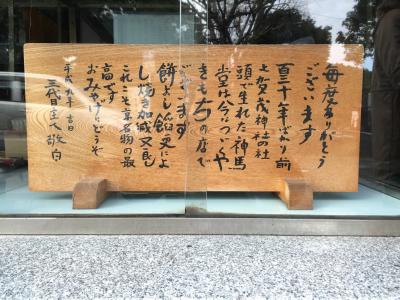 毎度ありがとう
ございます
百三十年ばかり前
上賀茂神社の社
頭で生れた神馬
堂は今につゞくや
きもちの店で
ございます
餅よし餡更によ
し焼き加減又良し
これこそ京名物の最
高です
おみやげにどうぞ
平成九年 吉日
三代目主人敬白